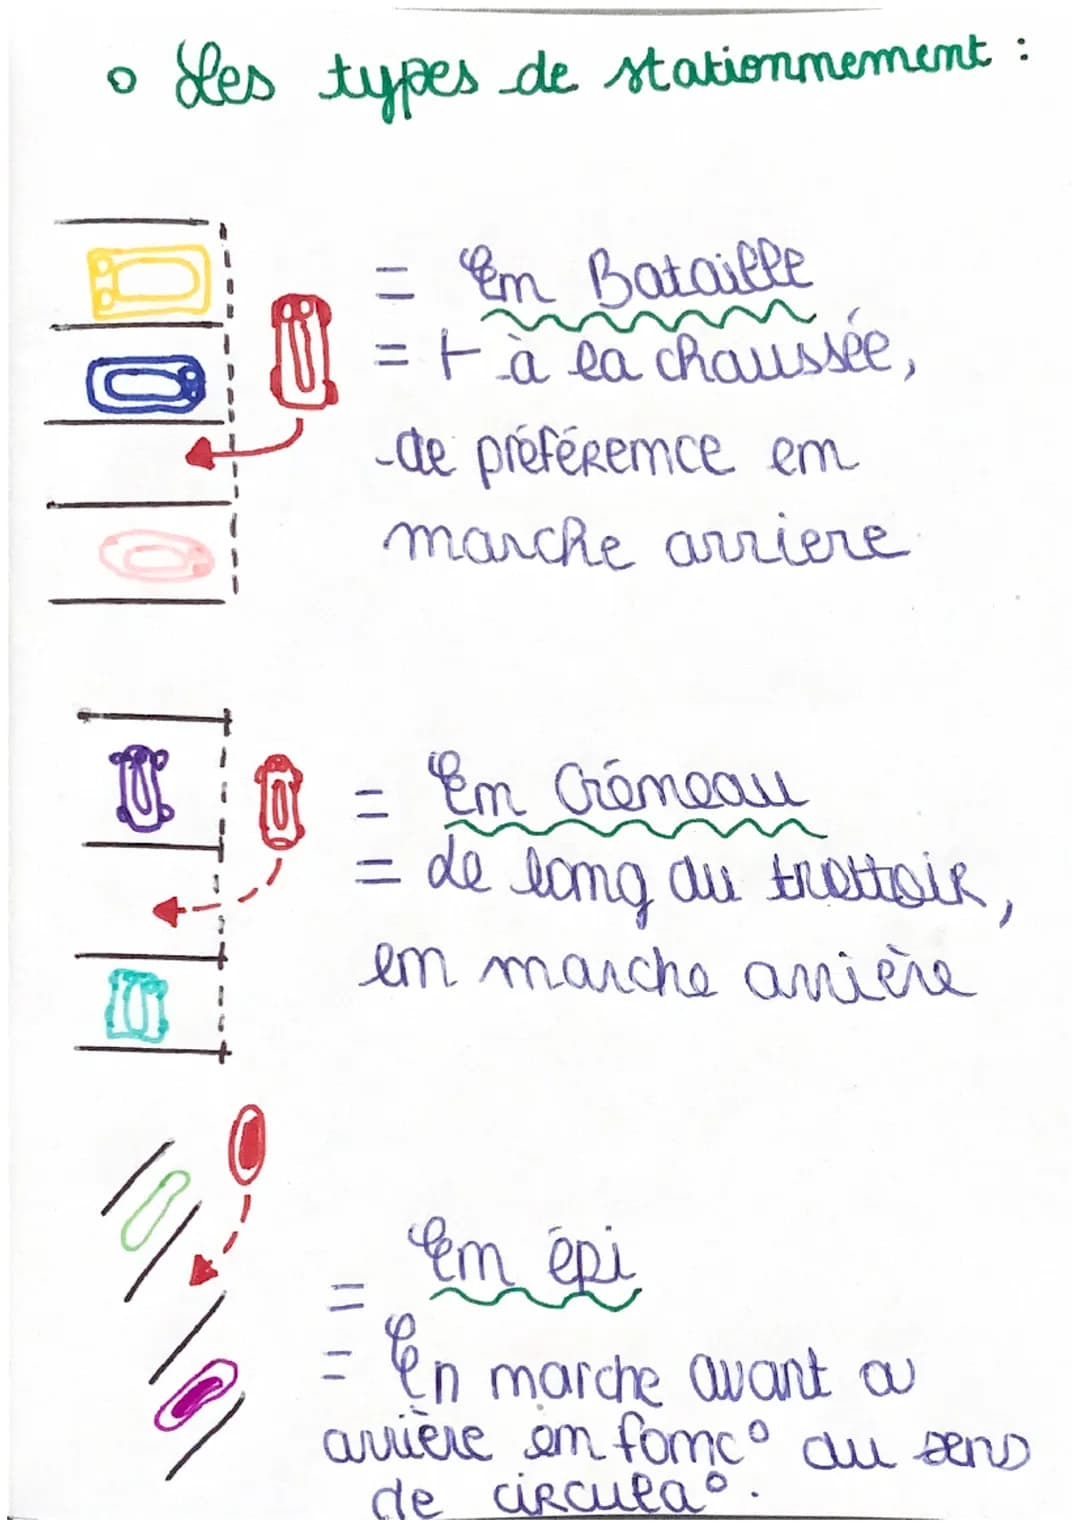 • Les types de stationnement :
= En Bataille
= ⊢ à la chaussée,
de préférence en
marche arriere
= En Créneau
= Le long du trottoir,
en marche arrière
= En épi
= En marche avant ou
arrière en fonc° du sens
de circula°.